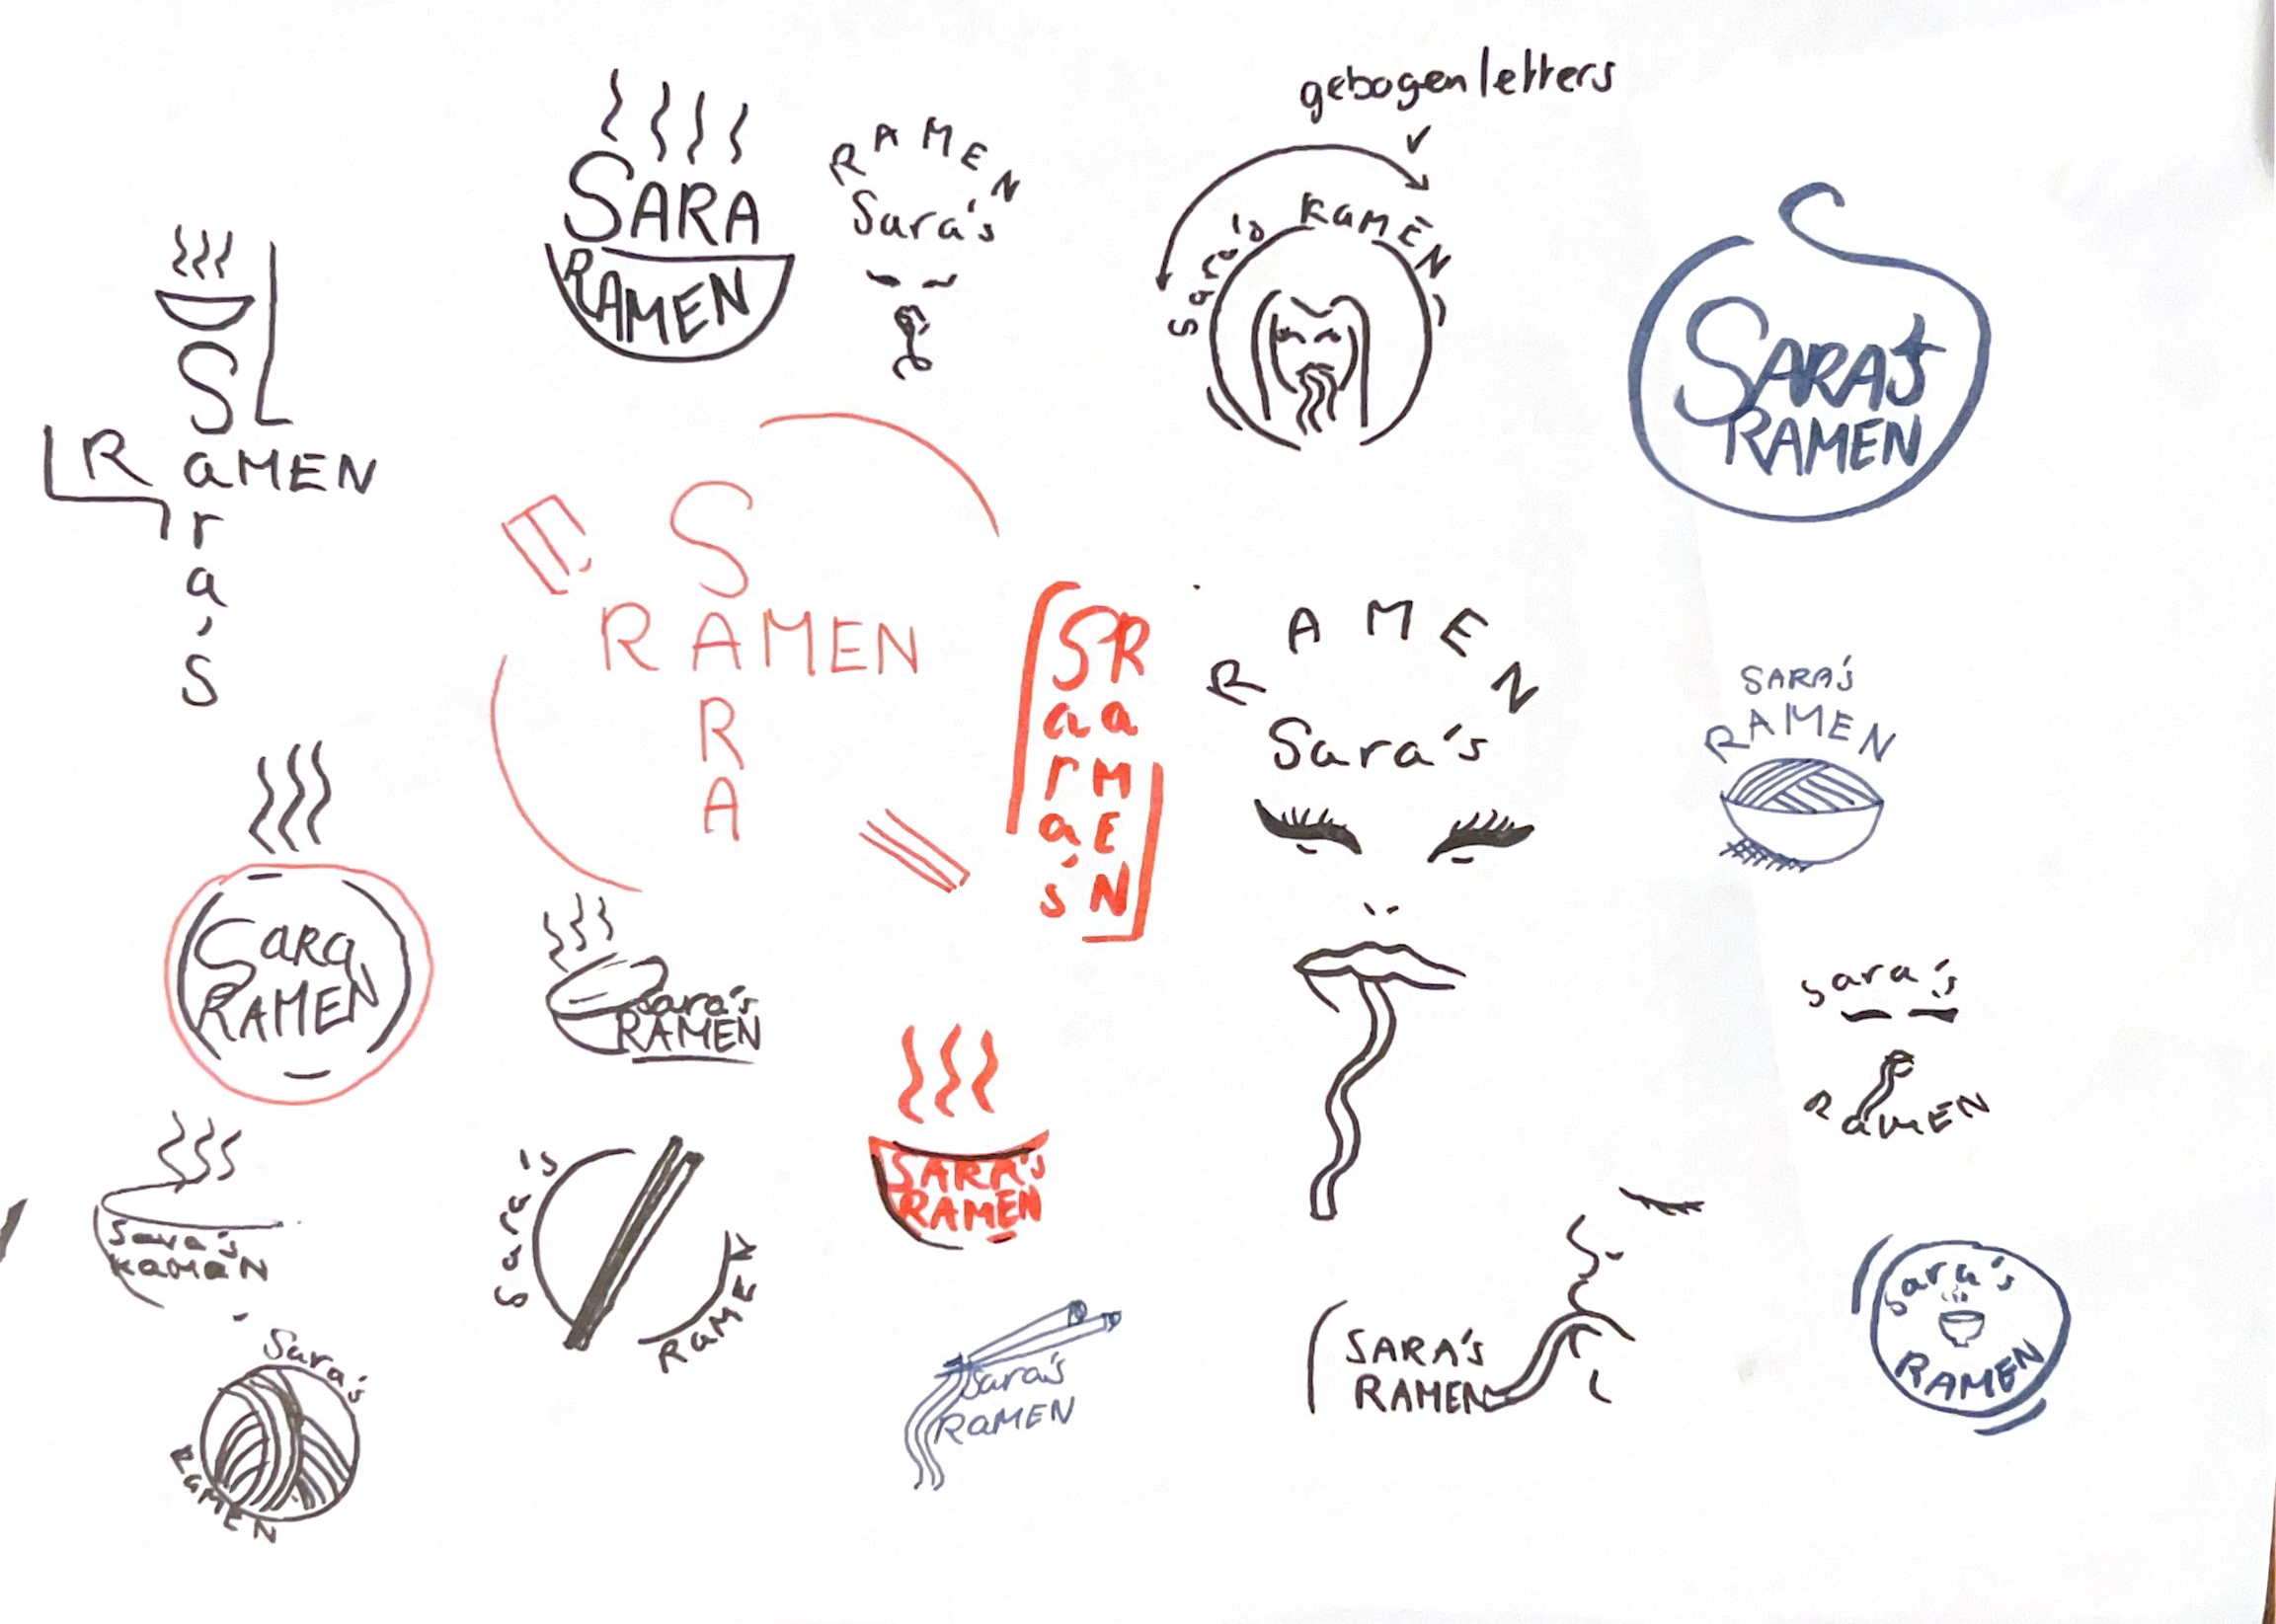 gebogen letters
SARA
RAMEN
RAMEN
Sara's
Sara's RaMEN
SARA's
RAMEN
Sara's
RaMEN
SARA
RAMEN
Sara's
RaMEN
RAMEN
Sara's
SARA'S
RAMEN
Sara
RAMEN
Sara's
RAMEN
SARA's
RAMEN
sara's
RaMEN
Sara's
RaMeN
Sara's
RaMEN
SARA'S
RAMEN
Sara's
RAMEN
Sara's
RaMEN
Sara's
RaMEN